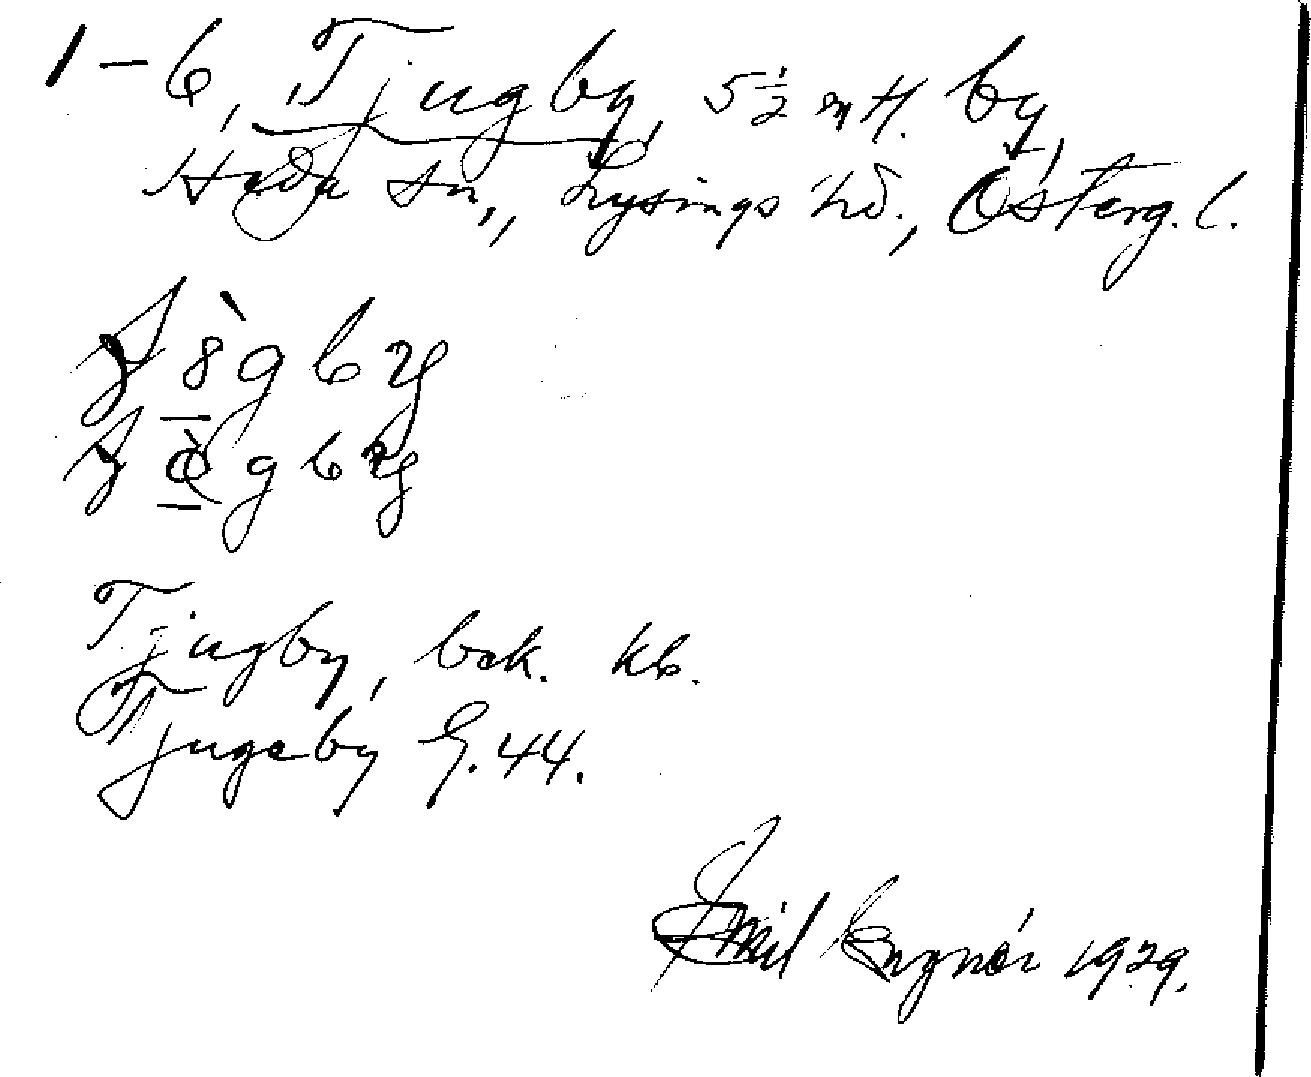 1–6, Tjugby, 5½ mtl. by,
Heda sn, Lysings hd., Österg. l.
gby
gby
Tjugby, bok. kb.
Tjugeby G. 44.
Emil Engnér 1929.